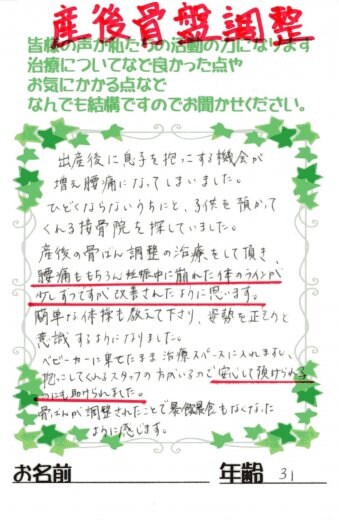 産後骨盤調整
皆様の声が私たちの活動の力になります
治療についてなど良かった点や
お気にかかる点など
なんでも結構ですのでお聞かせください。
出産後に息子を抱っこする機会が
増え腰痛になってしまいました。
ひどくならないうちにと、子供を預かって
くれる接骨院を探していました。
産後の骨ばん調整の治療をして頂き、
腰痛ももちろん妊娠中に崩れた体のラインが
少しずつですが改善されたように思います。
簡単な体操も教えて下さり、姿勢を正そうと
意識するようになりました。
ベビーカーに乗せたまま治療スペースに入れますし、
抱っこしてくれるスタッフの方がいるので安心して預けられる
のにも助けられました。
骨ばんが調整されたことで暴飲暴食もなくなった
ように感じます。
お名前 年齢 31